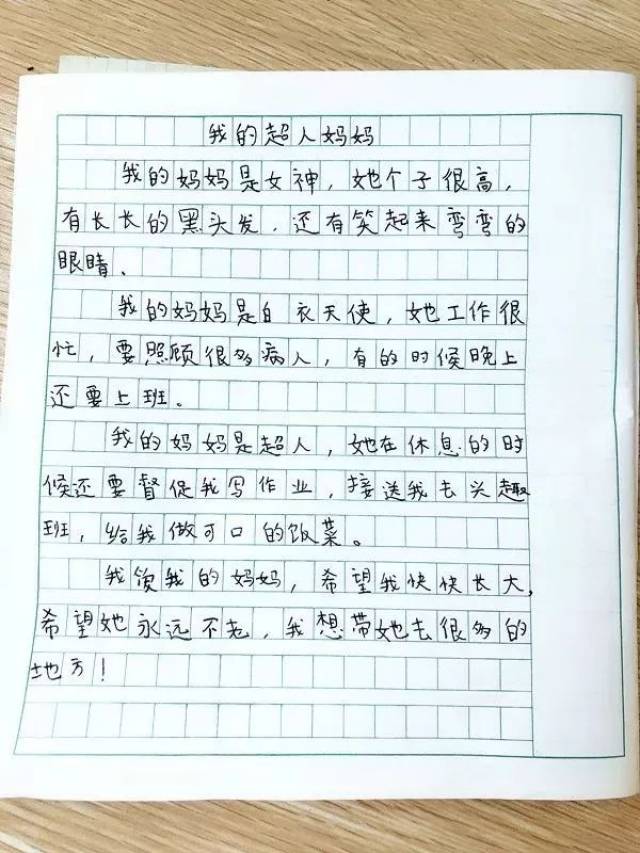 我的超人妈妈
我的妈妈是女神，她个子很高，
有长长的黑头发，还有笑起来弯弯的
眼睛、
我的妈妈是白衣天使，她工作很
忙，要照顾很多病人，有的时候晚上
还要上班。
我的妈妈是超人，她在休息的时
候还要督促我写作业，接送我去兴趣
班，给我做可口的饭菜。
我爱我的妈妈，希望我快快长大，
希望她永远不老，我想带她去很多的
地方！